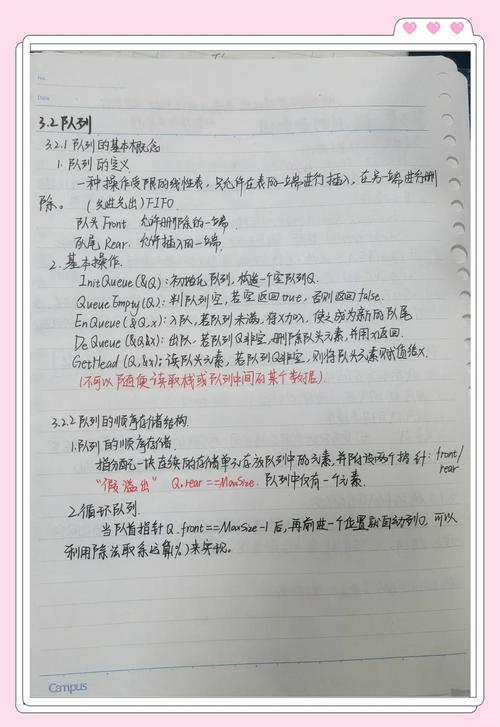 No.
Date
3.2 队列
3.2.1 队列的基本概念
1. 队列的定义
一种操作受限的线性表，只允许在表的一端进行插入，在另一端进行删
除。 (先进先出) FIFO
队头 Front 允许删除的一端
队尾 Rear. 允许插入的一端.
2. 基本操作.
InitQueue (&Q):初始化队列,构造一个空队列Q.
QueueEmpty (Q): 判队列空,若空返回true,否则返回false.
EnQueue (&Q,x): 入队,若队列未满,将x加入,使之成为新的队尾
DeQueue (&Q,&x): 出队,若队列Q非空,删除队头元素,并用x返回.
GetHead (Q,&x); 读队头元素,若队列Q非空,则将队头元素赋值给x.
(不可以随便读取栈或队列中间的某个数据).
3.2.2 队列的顺序存储结构.
1.队列的顺序存储.
指分配一块连续的存储单元存放队列中的元素,并附设两个指针: front/
rear
"假溢出" Q.rear==MaxSize. 队列中仅有一个元素.
2.循环队列.
当队首指针Q.front==MaxSize-1后,再前进一个位置就自动到0,可以
利用除法取余运算(%)来实现。
Campus